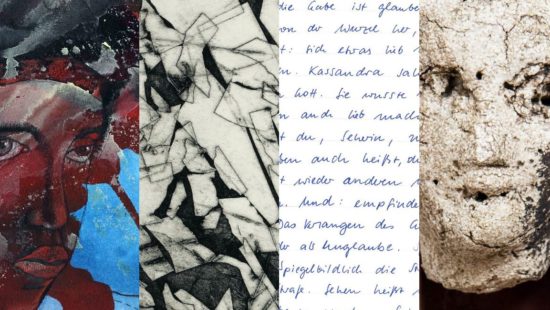 die Gabe ist glaube
von der Wurzel her,
t: sich etwas lieb
n. Kassandra sah
hatt. Sie wusste
en auch lieb mach
t du, Seherin,
ben auch heißt, d
t wieder anderen
. Und: empfinde
Das Verlangen des
der als Unglaube.
Spiegelbildlich die St
Sehen heißt